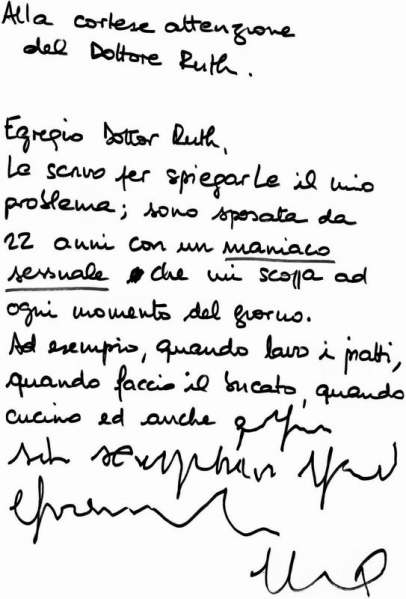 Alla cortese attenzione
del Dottore Ruth.
Egregio Dottor Ruth,
Le scrivo per spiegarLe il mio
problema; sono sposata da
22 anni con un maniaco
sessuale che mi scopa ad
ogni momento del giorno.
Ad esempio, quando lavo i piatti,
quando faccio il bucato, quando
cucino ed anche